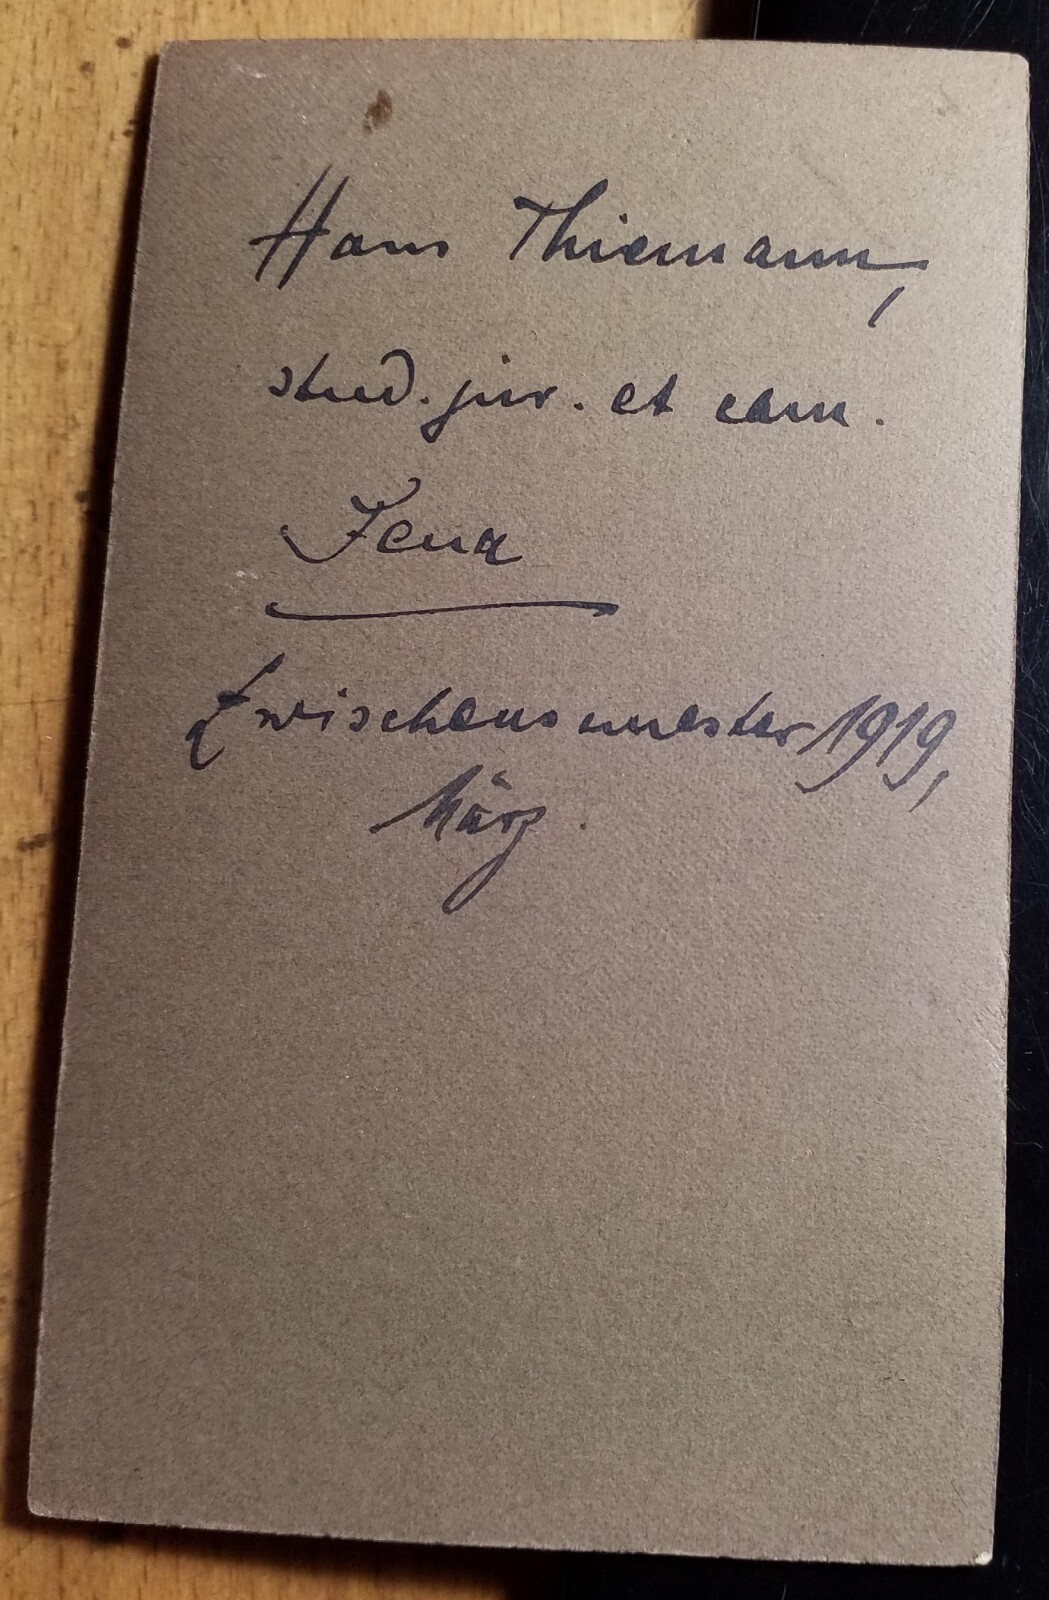 Hans Thiemann,
stud. jur. et cam.
Jena
Zwischensemester 1919,
März.